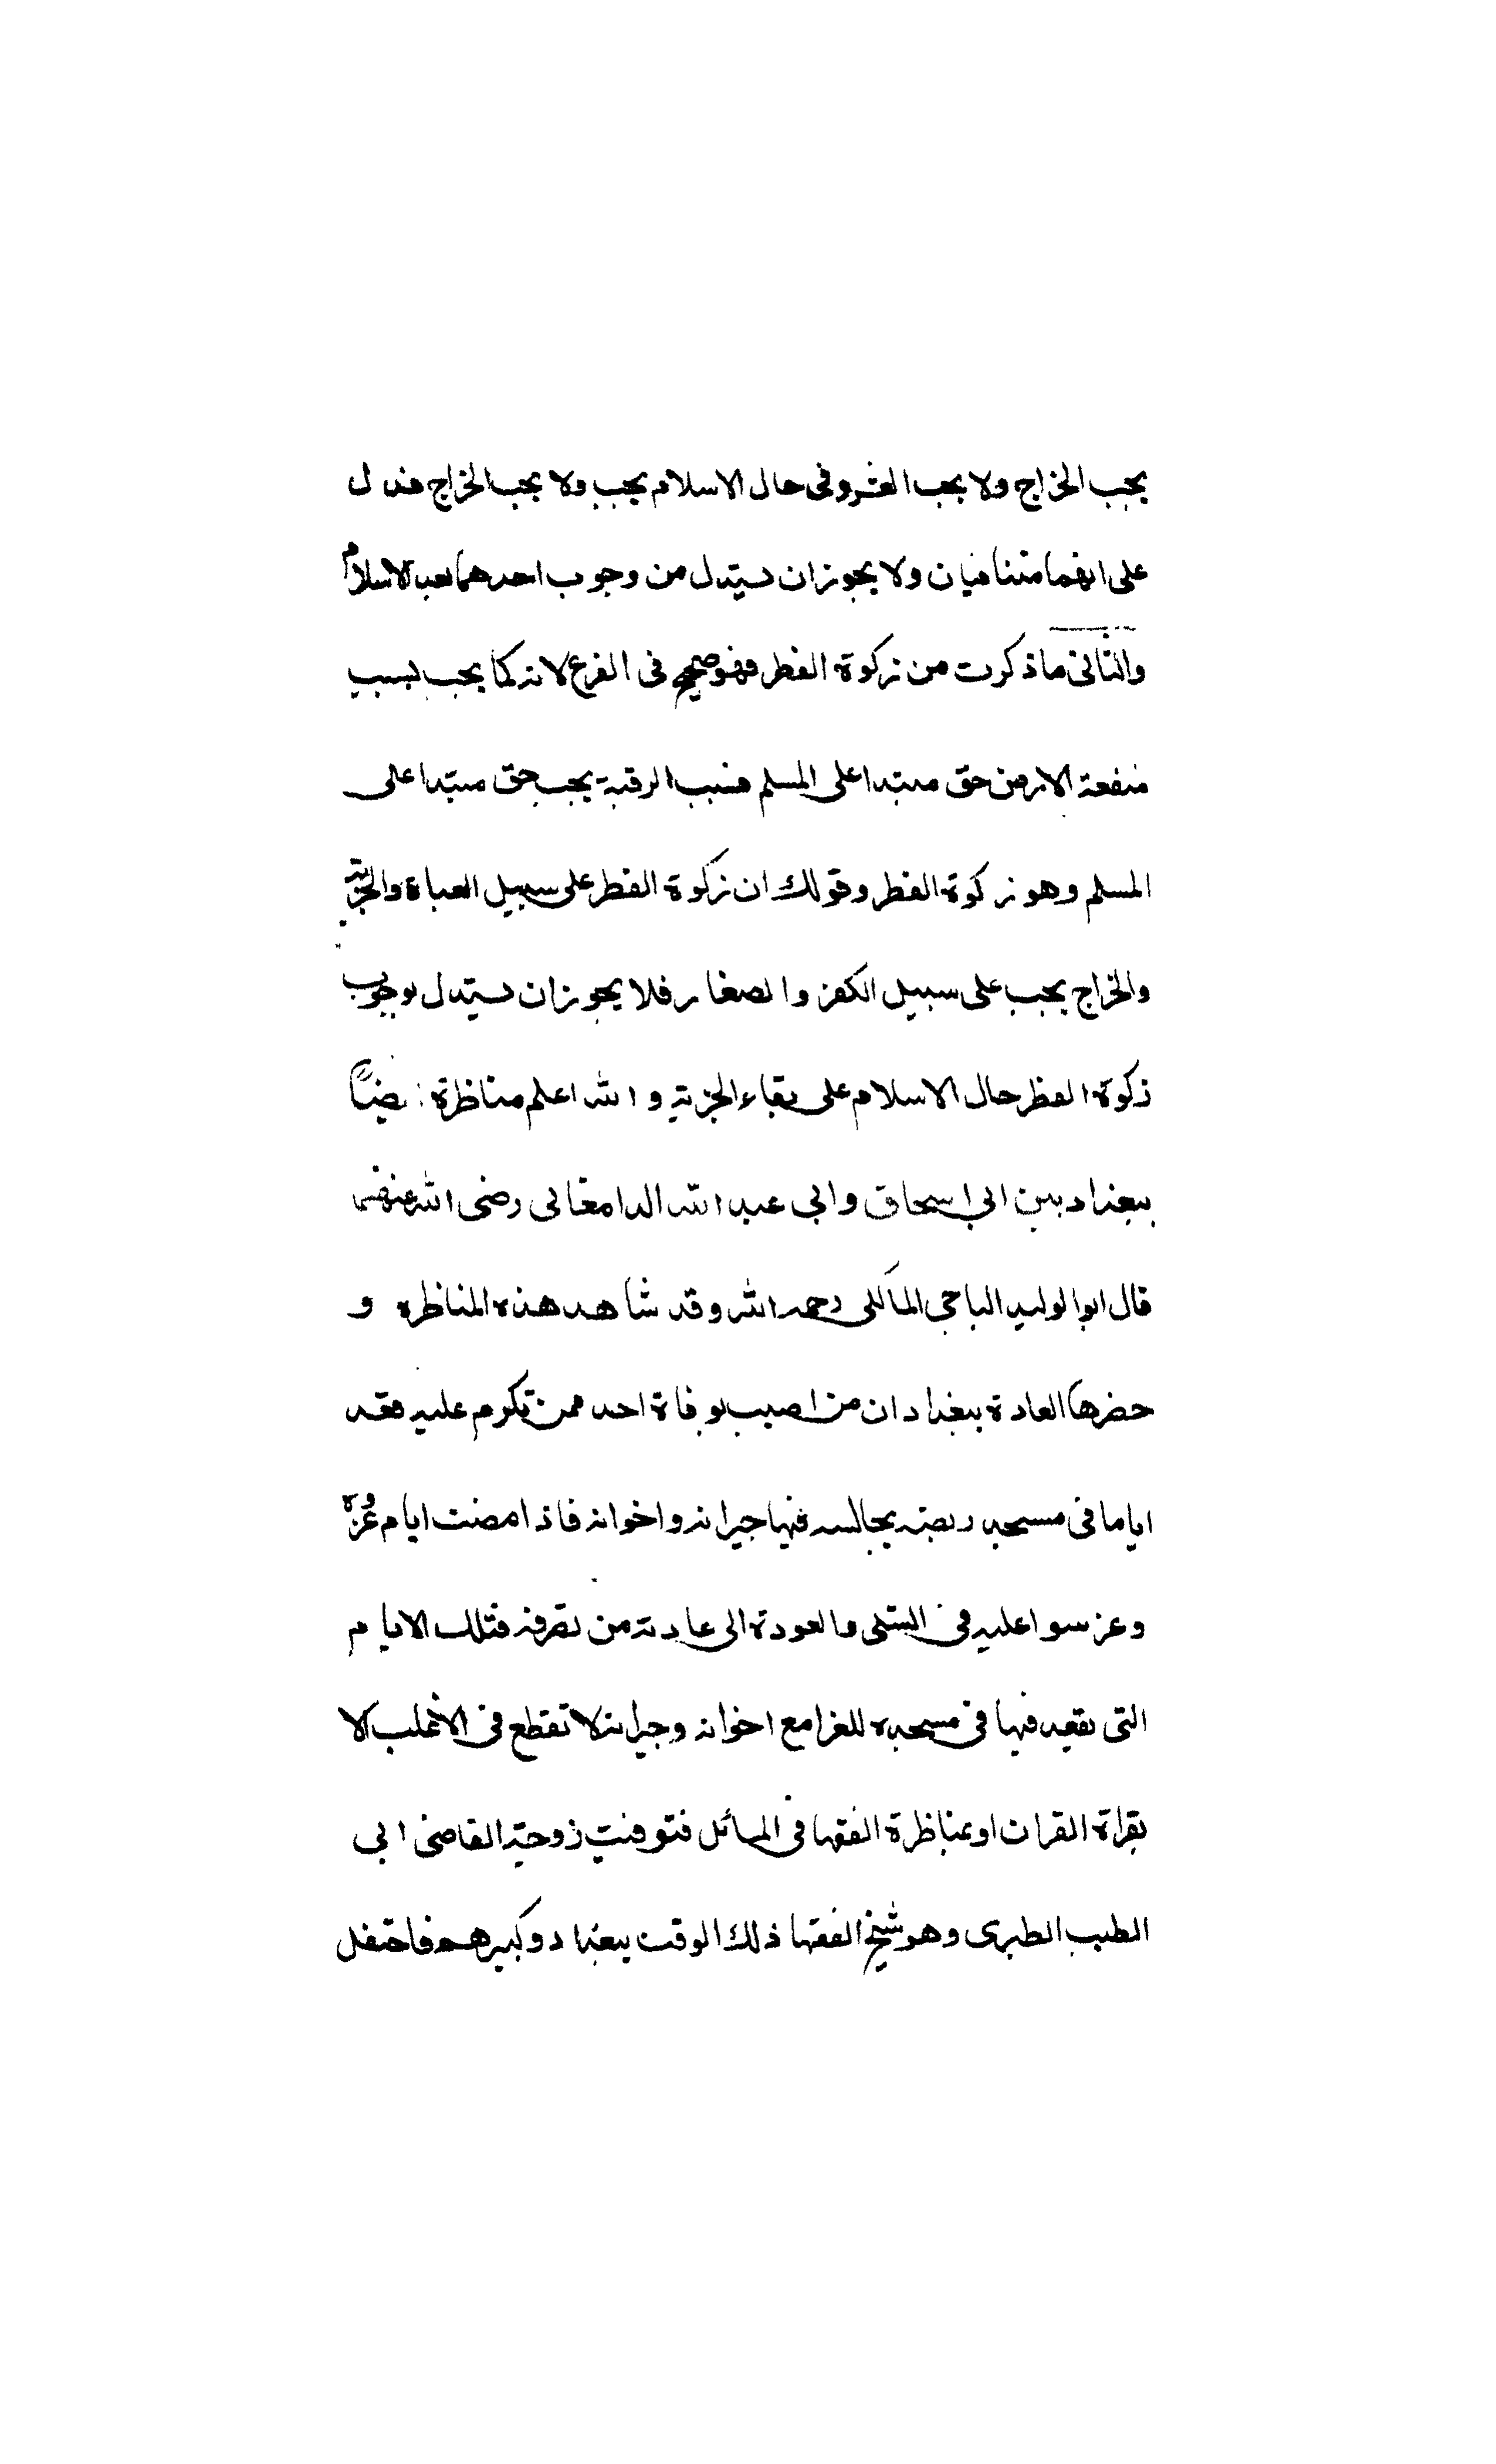 يجب الخراج ولا يجب العشر وفى حال الاسلام يجب ولا يجب الخراج فدل
على انهما متنافيان ولا يجوز ان يستدل من وجوب احدهما بعد الاسلام
والثانى ما ذكرت من زكوة الفطر فهو صحيح فى الفرع لانه كما يجب بسبب
منفعة الارض حق مبتدا على المسلم فبسبب الرقبة يجب حق مبتدا على
المسلم وهو زكوة الفطر وقولك ان زكوة الفطر على سبيل العباة والجزية
والخراج يجب على سبيل الكفر والصغار فلا يجوز ان يستدل بوجوب
زكوة الفطر حال الاسلام على بقاء الجزية والله اعلم مناظرة ايضاً
ببغداد بين ابى اسحاق وابى عبد الله الدامغانى رضى الله عنهما
قال ابوالوليد الباجى المالكى رحمه الله وقد شاهد هذه المناظره و
حضرها العادة ببغداد ان من اصيب بوفاة احد ممن تكرم عليه قعد
اياما فى مسجد ربضه يجالسه فيها جيرانه واخوانه فاذا مضت ايام عُزّوْه
وعزسوا عليه فى التسلى والعودة الى عادته من تصرفه فتلك الايام
التى يقعد فيها فى مسجده للعزا مع اخوانه وجيرانه لا تقطع فى الاغلب الا
بقراة القران او بمناظرة الفقها فى المسائل فتوفيت زوجة القاضى ابى
الطيب الطبرى وهو شيخ الفقها ذلك الوقت ببغداد وكبيرهم فاحتفل